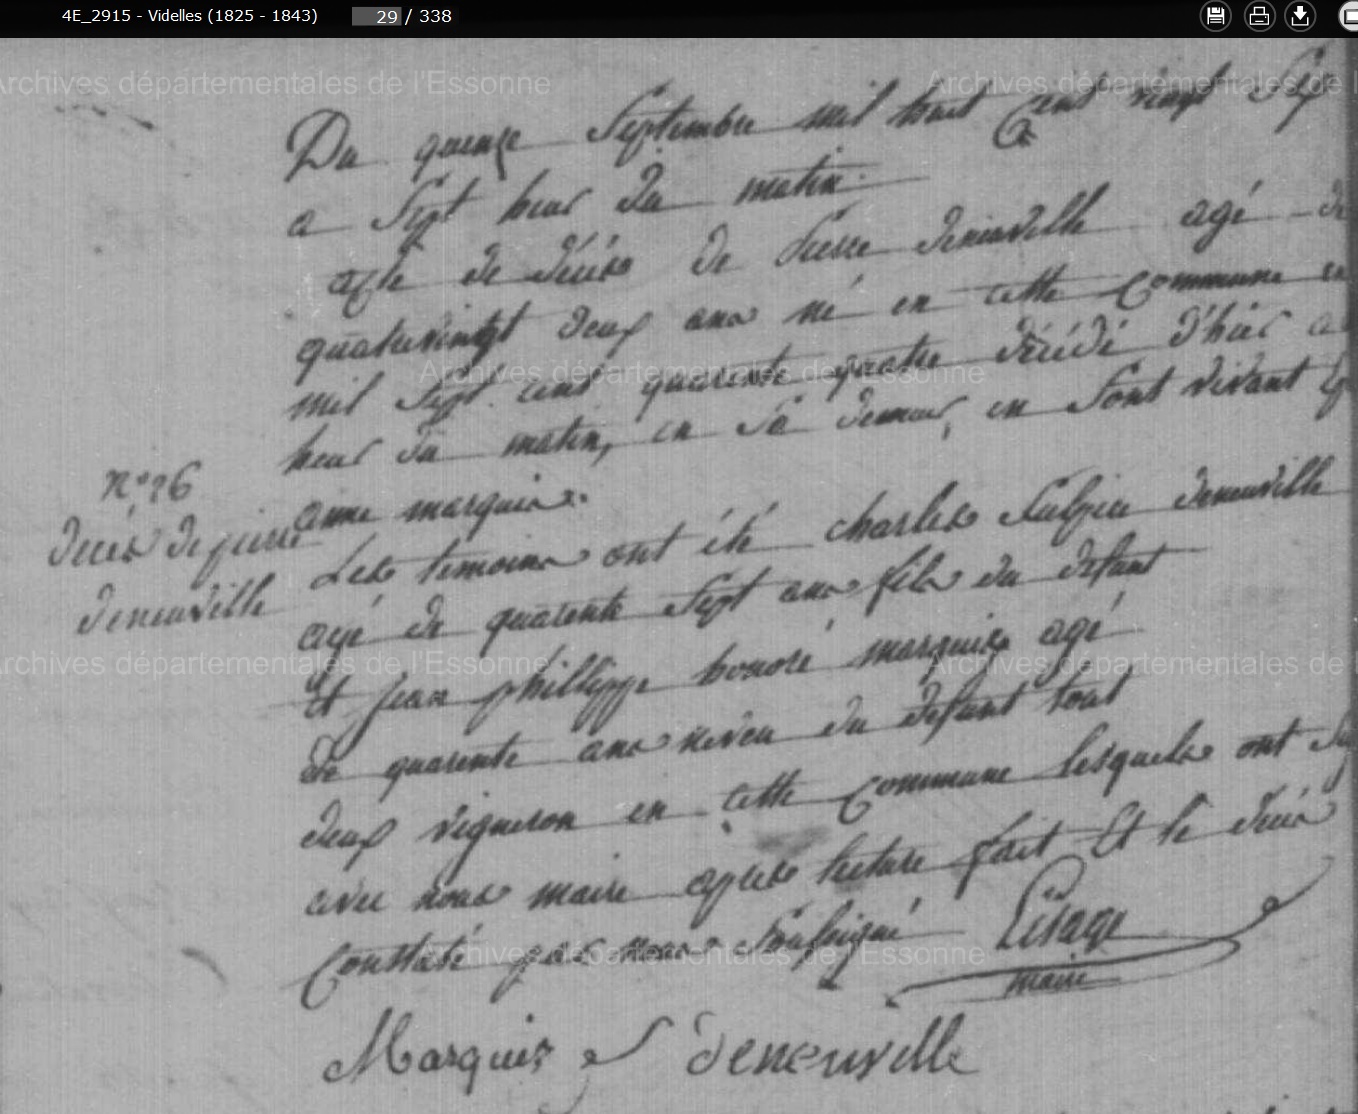 4E_2915 - Videlles (1825 - 1843) 29 / 338
Archives départementales de l'Essonne
Archives départementales de l'
Du quinze Septembre mil huit Cent vingt Six
a Sept heur du matin
acte de décès de Pierre deneuville agé de
quatrevingt deux ans né en cette Commune en
mil Sept cent quarente quatre décédé d'hier a
heur du matin, en Sa demeur, en Sont vivant
anne marquis.
n° 26
décès de pierre
deneuville
Les temoins ont été charles Sulpice deneuville
agé de quarente Sept ans fils du defunt
Et jean phillippe honoré marquis agé
de quarente ans neveu du defunt tout
deux vigneron en cette Commune lesquels ont
avec nous maire apres lecture fait Et le décès
Constaté par nous Soussigné Lesage
maire
Marquis deneuville